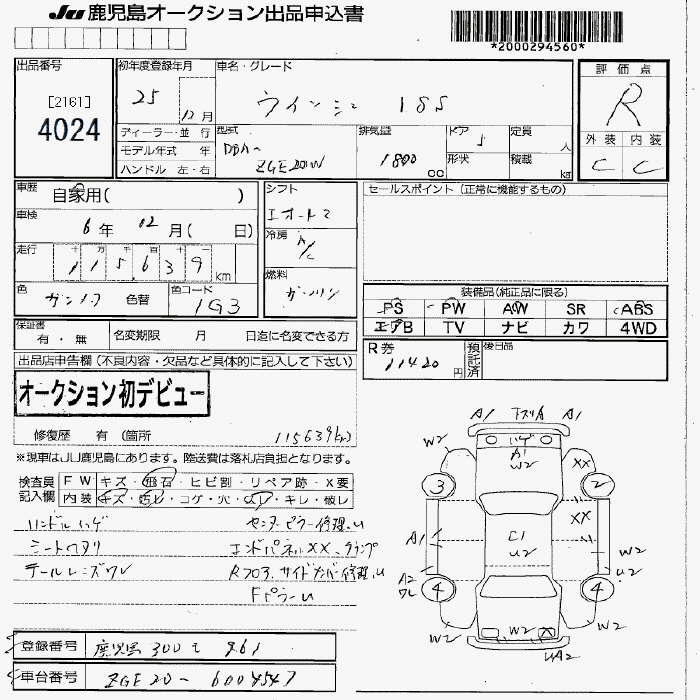 JU 鹿児島オークション出品申込書
*2000294560*
出品番号
[2161]
4024
初年度登録年月
25 12 月
ディーラー・並 行
モデル年式 年
ハンドル 左・右
車名・グレード
ウィッシュ 1.8S
型式
DBA-
ZGE20W
排気量
1800 cc
ドア 5
形状
定員 人
積載 kg
評 価 点
R
外 装 内 装
C C
車歴
自家用( )
車検
6 年 12 月( 日)
走行
十 万 千 百 十 一
115,639 km
色
ガンメタ 色替
色コード
1G3
シフト
フロアオートマ
冷房
A/C
燃料
ガソリン
セールスポイント(正常に機能するもの)
装備品(純正品に限る)
PS PW AW SR ABS
エアB TV ナビ カワ 4WD
保証書
有・無
名変期限 月 日迄に名変できる方
R券
11420 円
預託済
後日品
出品店申告欄(不良内容・欠品など具体的に記入して下さい)
オークション初デビュー
修復歴 有(箇所
115639km)
※現車はJU鹿児島にあります。陸送費は落札店負担となります。
検査員記入欄
FW キズ・飛石・ヒビ割・リペア跡・X要
内装 キズ・汚レ・コゲ・穴・スレ・キレ・破レ
ハンドルハゲ
センターピラー修理U
シートヘタリ
エンドパネルXX、クランプ
テールレンズワレ
Rフロア、サイドカバー修理U
FピラーU
登録番号
鹿児島 300 て 961
車台番号
ZGE20-6004547
A1 下スリA A1
W2 ハゲ
A1
W2
XX W2
3 2
XX
A1 C1
U2
W2
A2 U2
ワレ
4 4
W2 W2 X W2
UA2